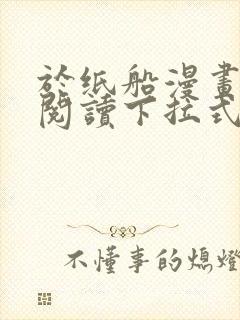 於紙船漫畫
閱讀下拉式
不懂事的熄燈